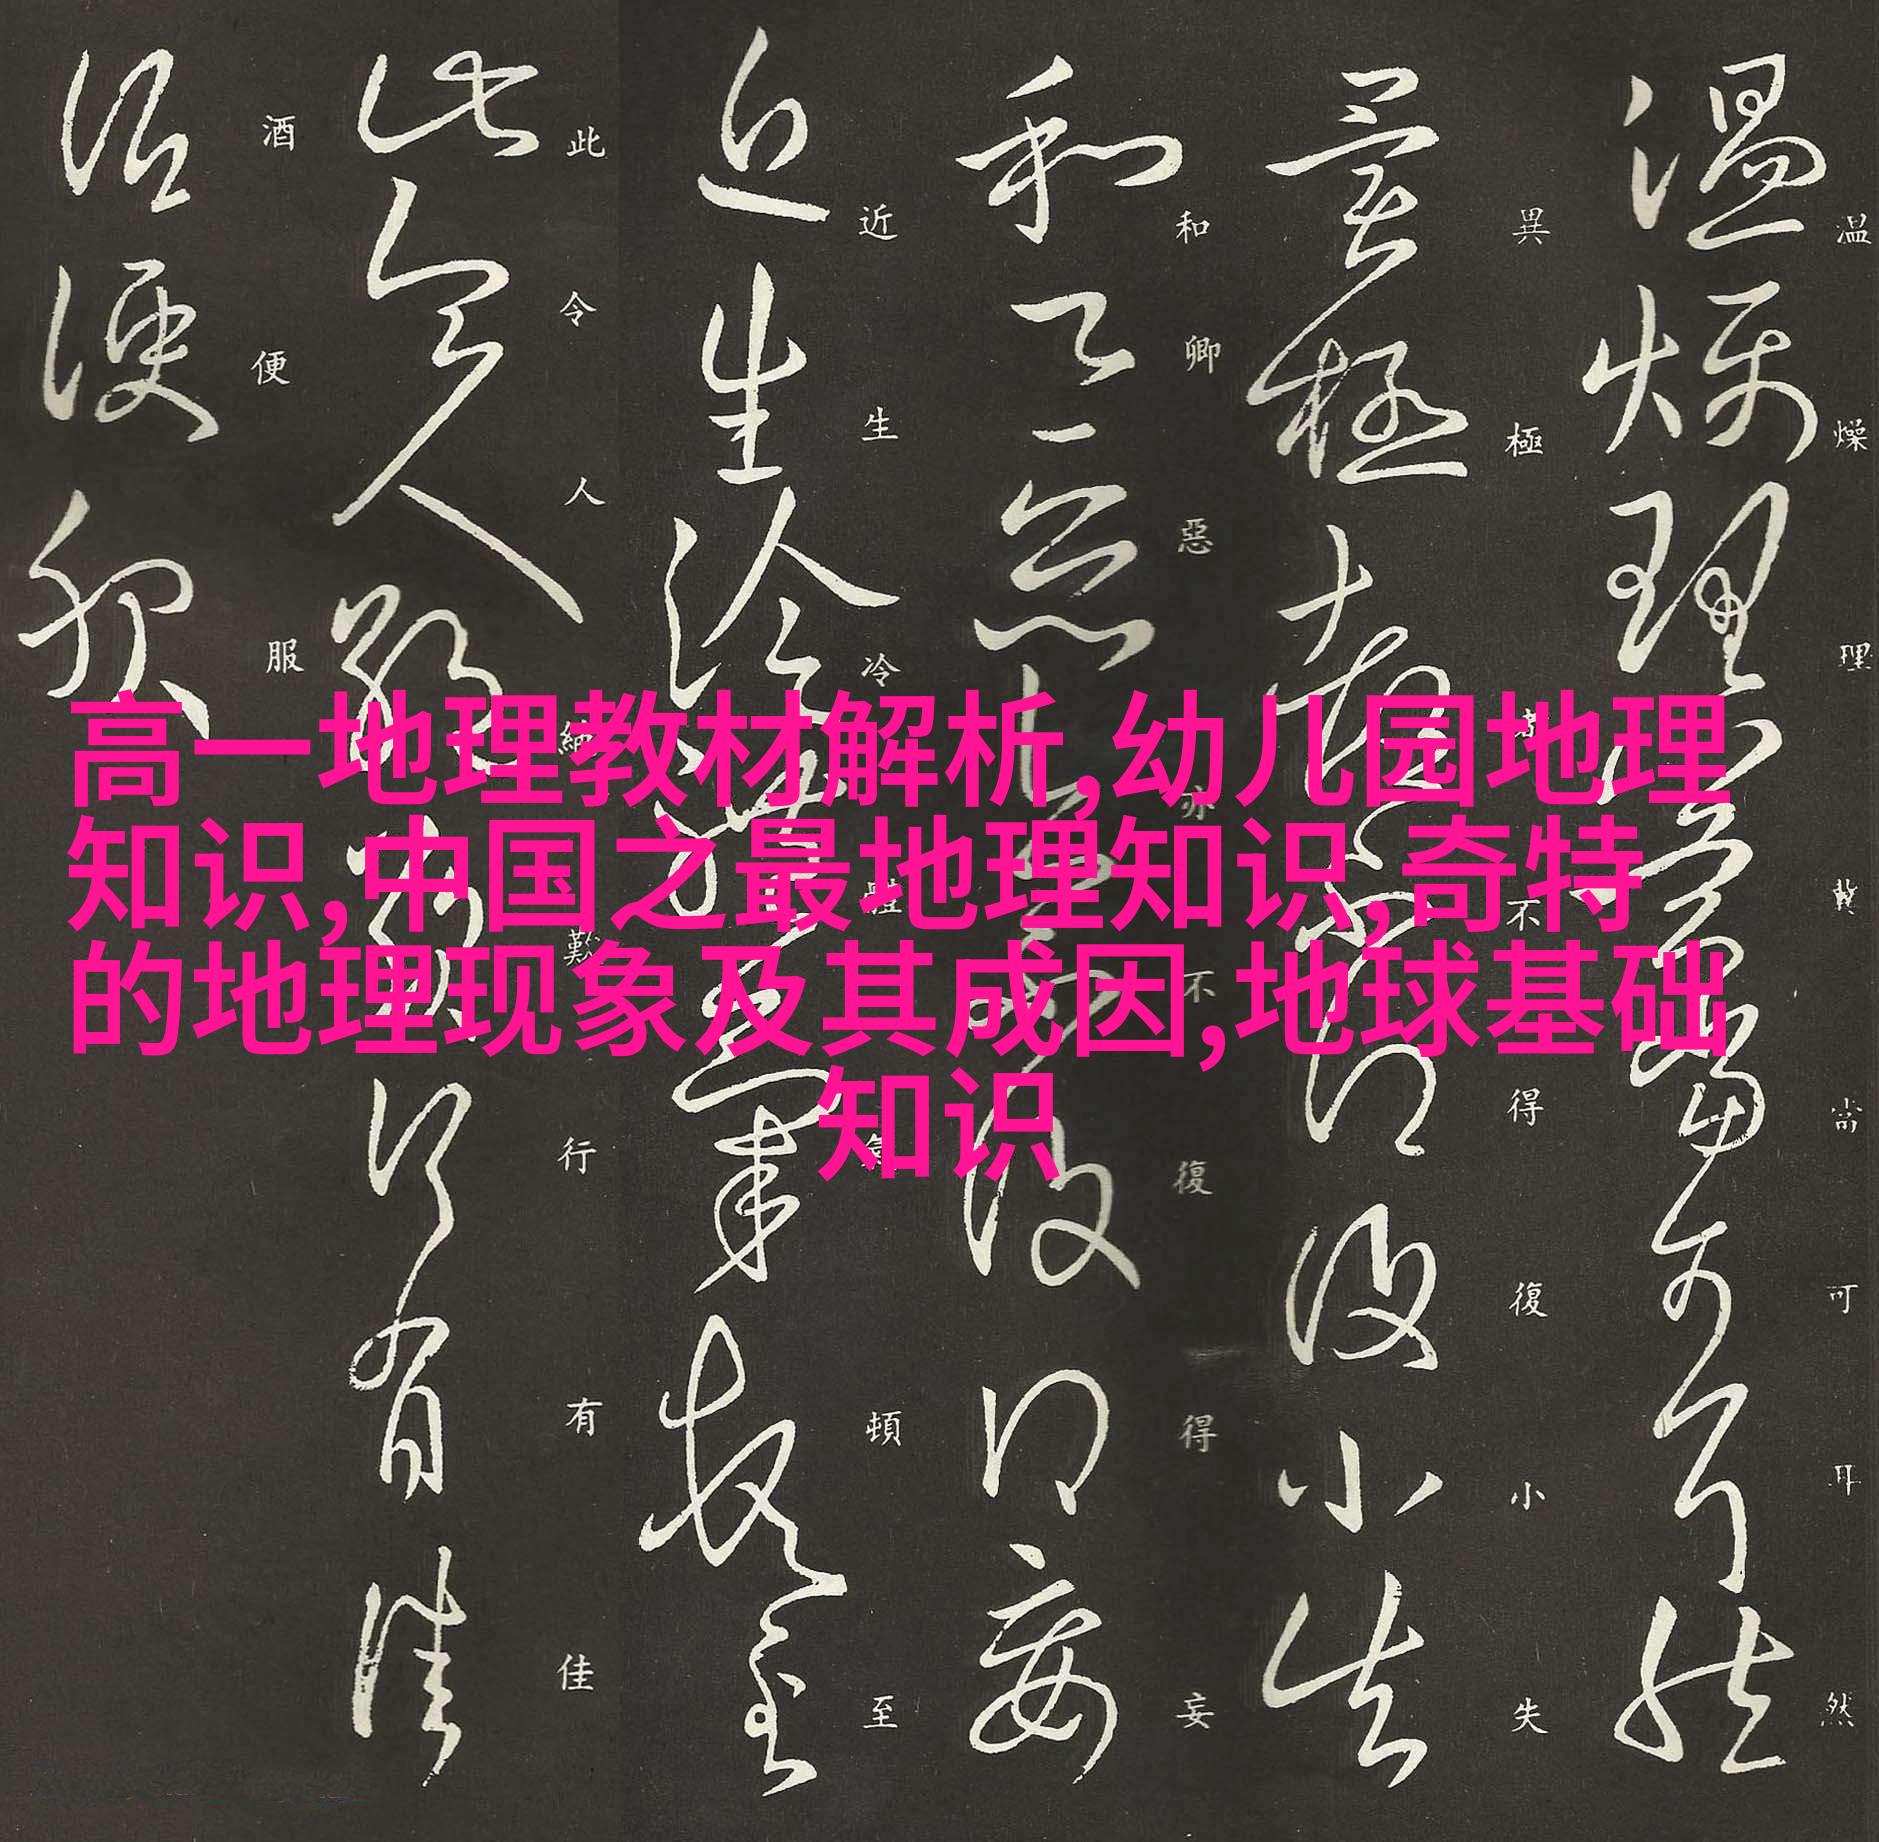 高一地理教材解析,幼儿园地理
知识,中国之最地理知识,奇特
的地理现象及其成因,地球基础
知识
温燥理冀當可耳然
異極不得復小失
和卿惡亦不復得妄
近生冷體氣頓至
此令人歎行有佳
酒便服